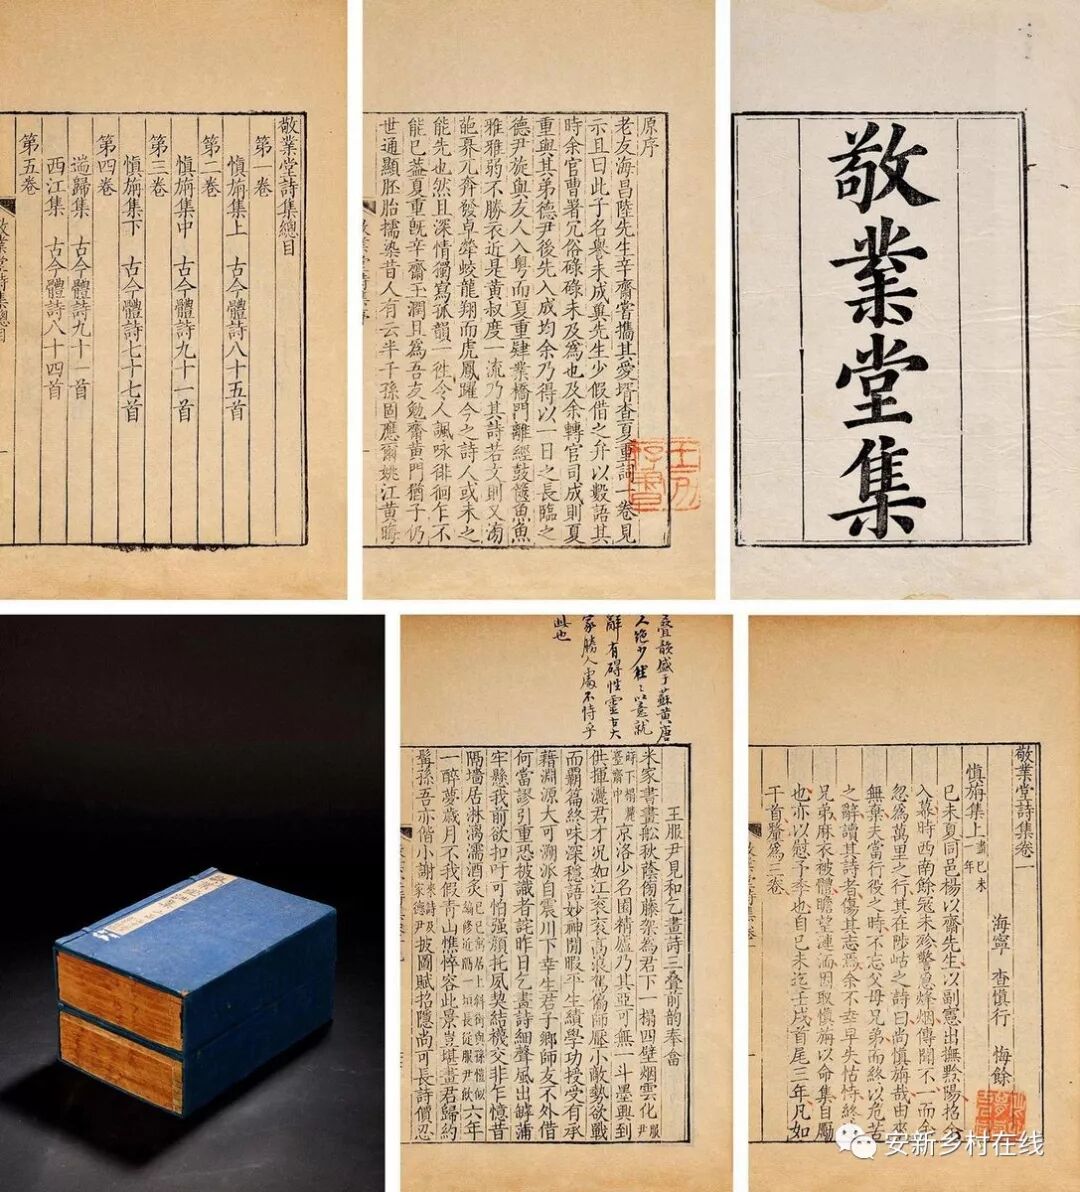 敬業堂詩集總目
第一卷
慎旃集上　古今體詩八十五首
第二卷
慎旃集中　古今體詩九十一首
第三卷
慎旃集下　古今體詩七十七首
第四卷
遄歸集　古今體詩九十一首
西江集　古今體詩八十四首
第五卷
原序
老友海昌陸先生辛齋嘗攜其愛壻查夏重詞一卷見
示且曰此子名譽未成奠先生少假借之弁以數語其
時余官曹署冗俗碌碌未及為也及余轉官司成則夏
重與其弟德尹後先入成均余乃得以一日之長臨之
德尹旋與友人入粵而夏重肄業橋門離經鼓篋魚魚
雅雅弱不勝衣近是黃叔度一流乃其詩若文則又滂
葩奡兀奔發卓犖蛟龍翔而虎鳳躍今之詩人或未之
能先也然且深情獨寫孤韻一往令人諷咏徘徊乍不
能已蓋夏重旣辛齋玉潤且為吾友勉齋黃門猶子仍
世通顯胚胎擩染昔人有云半千孫固應爾姚江黃晦
敬業堂集
疊韻盛于蘇黃唐
人絶少往往以意就
辭有碍性靈古大
家勝人處不恃乎
此也
王服尹見和乞畫詩三疊前韵奉畣
米家書畫舩秋蔭衕藤架為君下一榻四壁烟雲化服尹
時下榻
臺齋中京洛少名園精廬乃其亞可無一斗墨興到
供揮灑君才况如江袞袞高浪駕偏師壓小敵勢欲戰
而覇篇終味深穩語妙神閒暇平生績學功授受有承
藉淵源大可溯派自震川下幸生君子鄉師友不外借
何當謬引重恐被識者詫昨日乞畫詩細聲風出罅蒲
牢懸我前欲扣吁可怕强顏托夙契結襪交非乍憶昔
隔墻居淋漓濡酒炙六年
一醉夢歲月不我假青山憔悴容此景豈堪畫君歸約
髯孫吾亦偕小謝披圖賦招隱尚可長詩價忍
敬業堂詩集卷一
海寧　查慎行　悔餘
慎旃集上起己未盡一年
己未夏同邑楊以齋先生以副憲出撫黔陽招余
入幕時西南餘寇未殄警急烽烟傳聞不一而余
忽為萬里之行其在陟岵之詩曰尚慎旃哉由來
無棄夫當行役之時不忘父母兄弟而終以危苦
之辭讀其詩者傷其志焉余不幸早失怙恃終鮮
兄弟麻衣被體瞻望漣洏因取慎旃以命集自勵
也亦以慰予季也自己未迄壬戌首尾三年凡如
干首釐為三卷
安新乡村在线